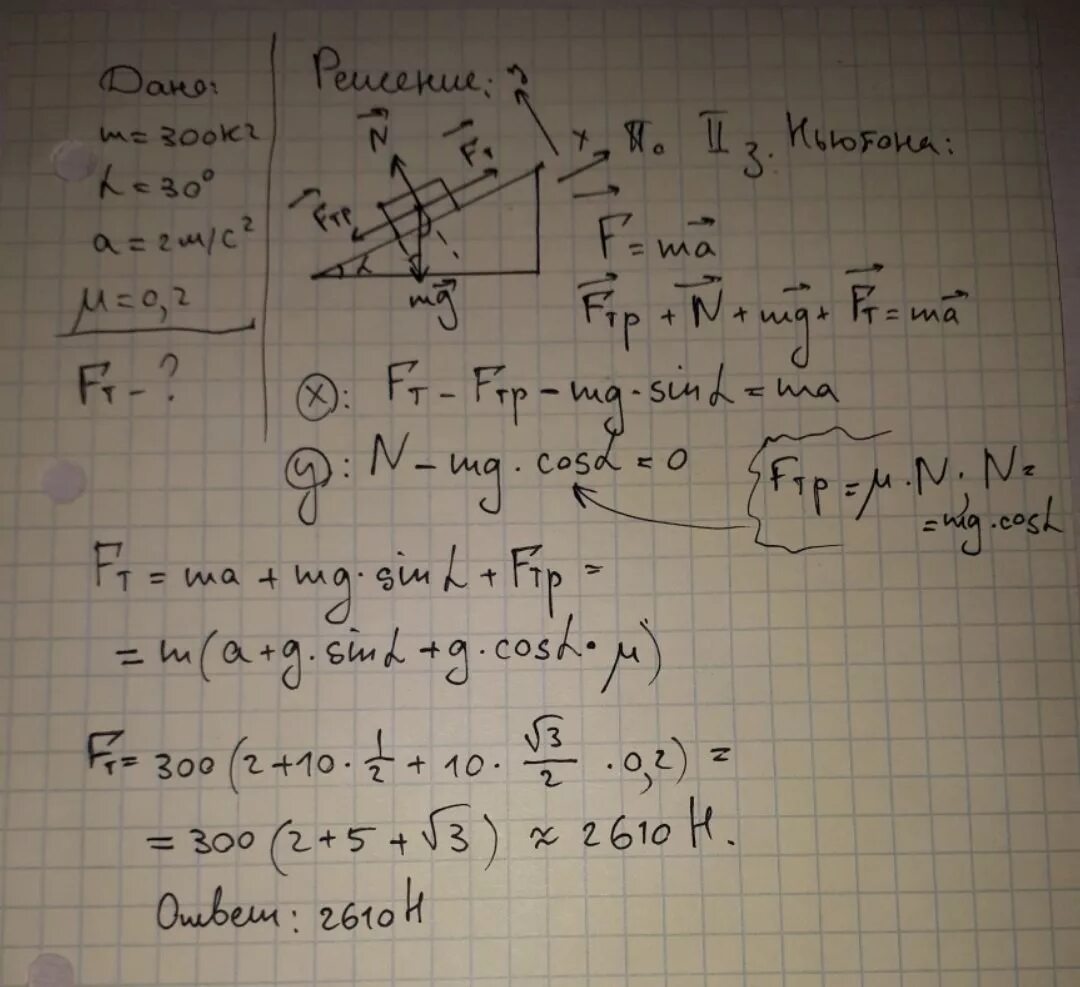 Дано:
m=300кг
α=30°
a=2м/с²
μ=0,2
Fт-?
Решение:
y
N
Fт
x
Fтр
α
mg
По II з. Ньютона:
F=ma
Fтр+N+mg+Fт=ma
(x): Fт-Fтр-mg·sinα=ma
(y): N-mg·cosα=0
Fтр=μ·N; N=
=mg·cosα
Fт=ma+mg·sinα+Fтр=
=m(a+g·sinα+g·cosα·μ)
Fт=300(2+10·1/2+10·√3/2·0,2)=
=300(2+5+√3)≈2610 Н.
Ответ: 2610 Н